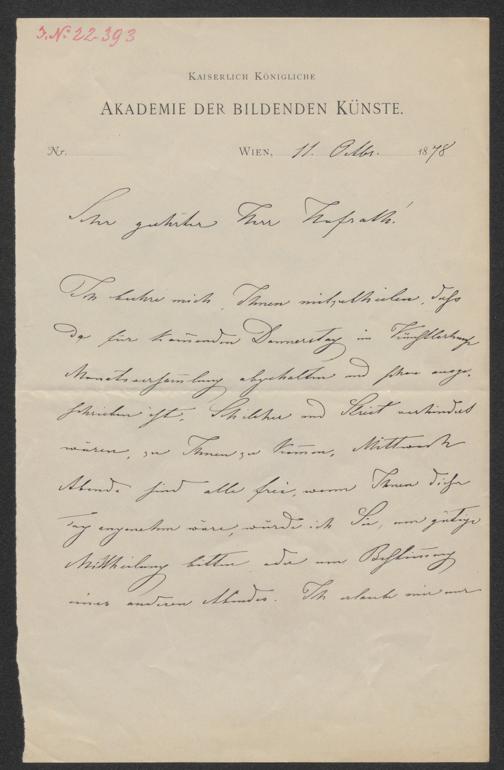 J.N. 22.393
KAISERLICH KÖNIGLICHE
AKADEMIE DER BILDENDEN KÜNSTE.
Nr. WIEN, 11. Octbr. 1878
Sehr geehrter Herr Hofrath!
Ich beehre mich, Ihnen mitzutheilen, daß
da für kom̅enden Donnerstag im Künstlerhause
Monatsversam̅lung abgehalten und schon ausge-
schrieben ist, Schilcher und Streit verhindert
wären, zu Ihnen zu kom̅en. Mittwoch
Abends sind alle frei, wenn Ihnen dieser
Tag angenehm wäre, würde ich Sie, um gütige
Mittheilung bitten oder um Bestim̅ung
eines anderen Abendes. Ich erlaube mir nur